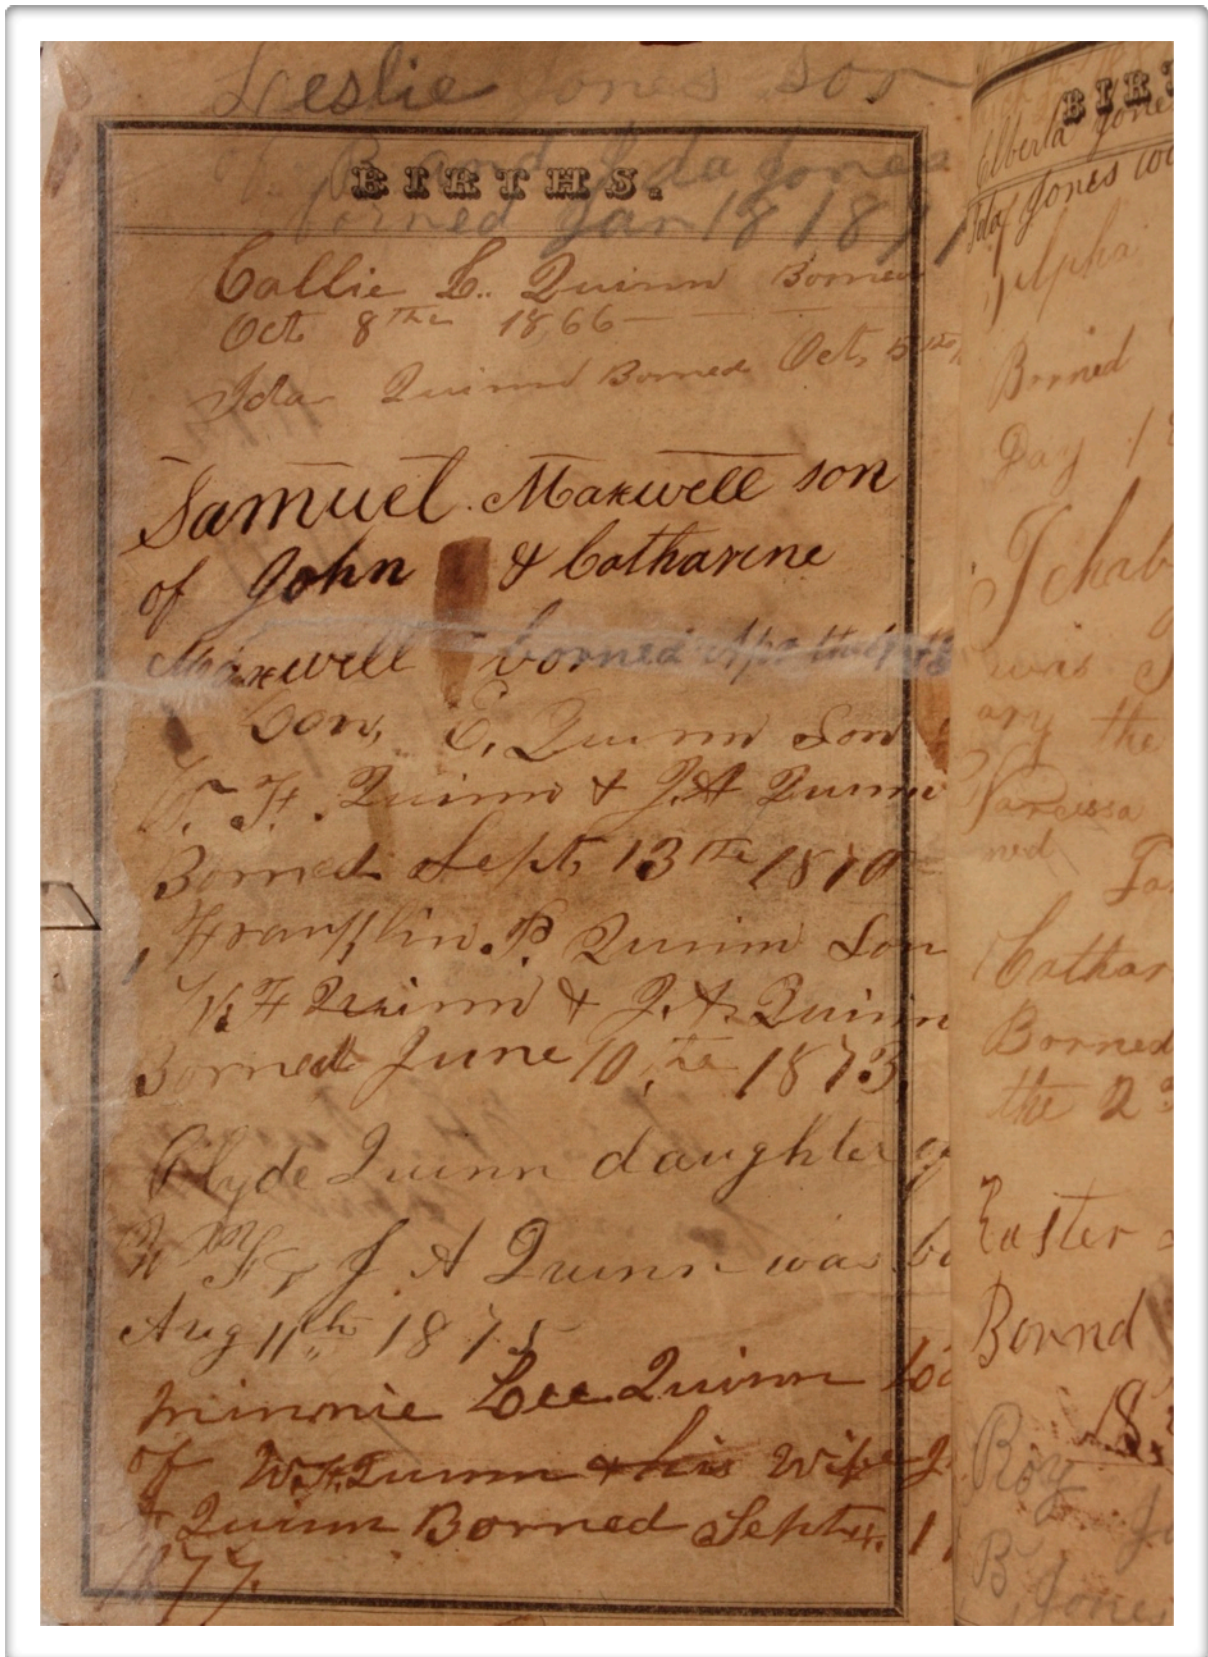 Leslie Jones son
of B and Ida Jones
BIRTHS.
borned Jan 18 18
Callie L. Quinn Borned
Oct 8th 1866
Ida Quinn Borned Oct 5th
Samuel Maxwell son
of John & Catharine
Maxwell borned
Con, E. Quinn Son
F. Quinn & J.A Quinn
Borned Sept 13th 1870
Franklin. P. Quinn Son
W. F Quinn & J. A. Quinn
Borned June 10,th 1873
Clyde Quinn daughter of
W F J A Quinn was bo
Aug 11th 1875
Minnie Lee Quinn
of W.F. Quinn & his Wife J.
A Quinn Borned Septr. 1
1877.
BIRT
Elberta Jone
Ida Jones
Alpha
Borned
Day 1
Ichab
was
ary the
Narcissa
ned
Cathar
Borned
the 2
Easter
Bornd
18
Roy J
B Jones